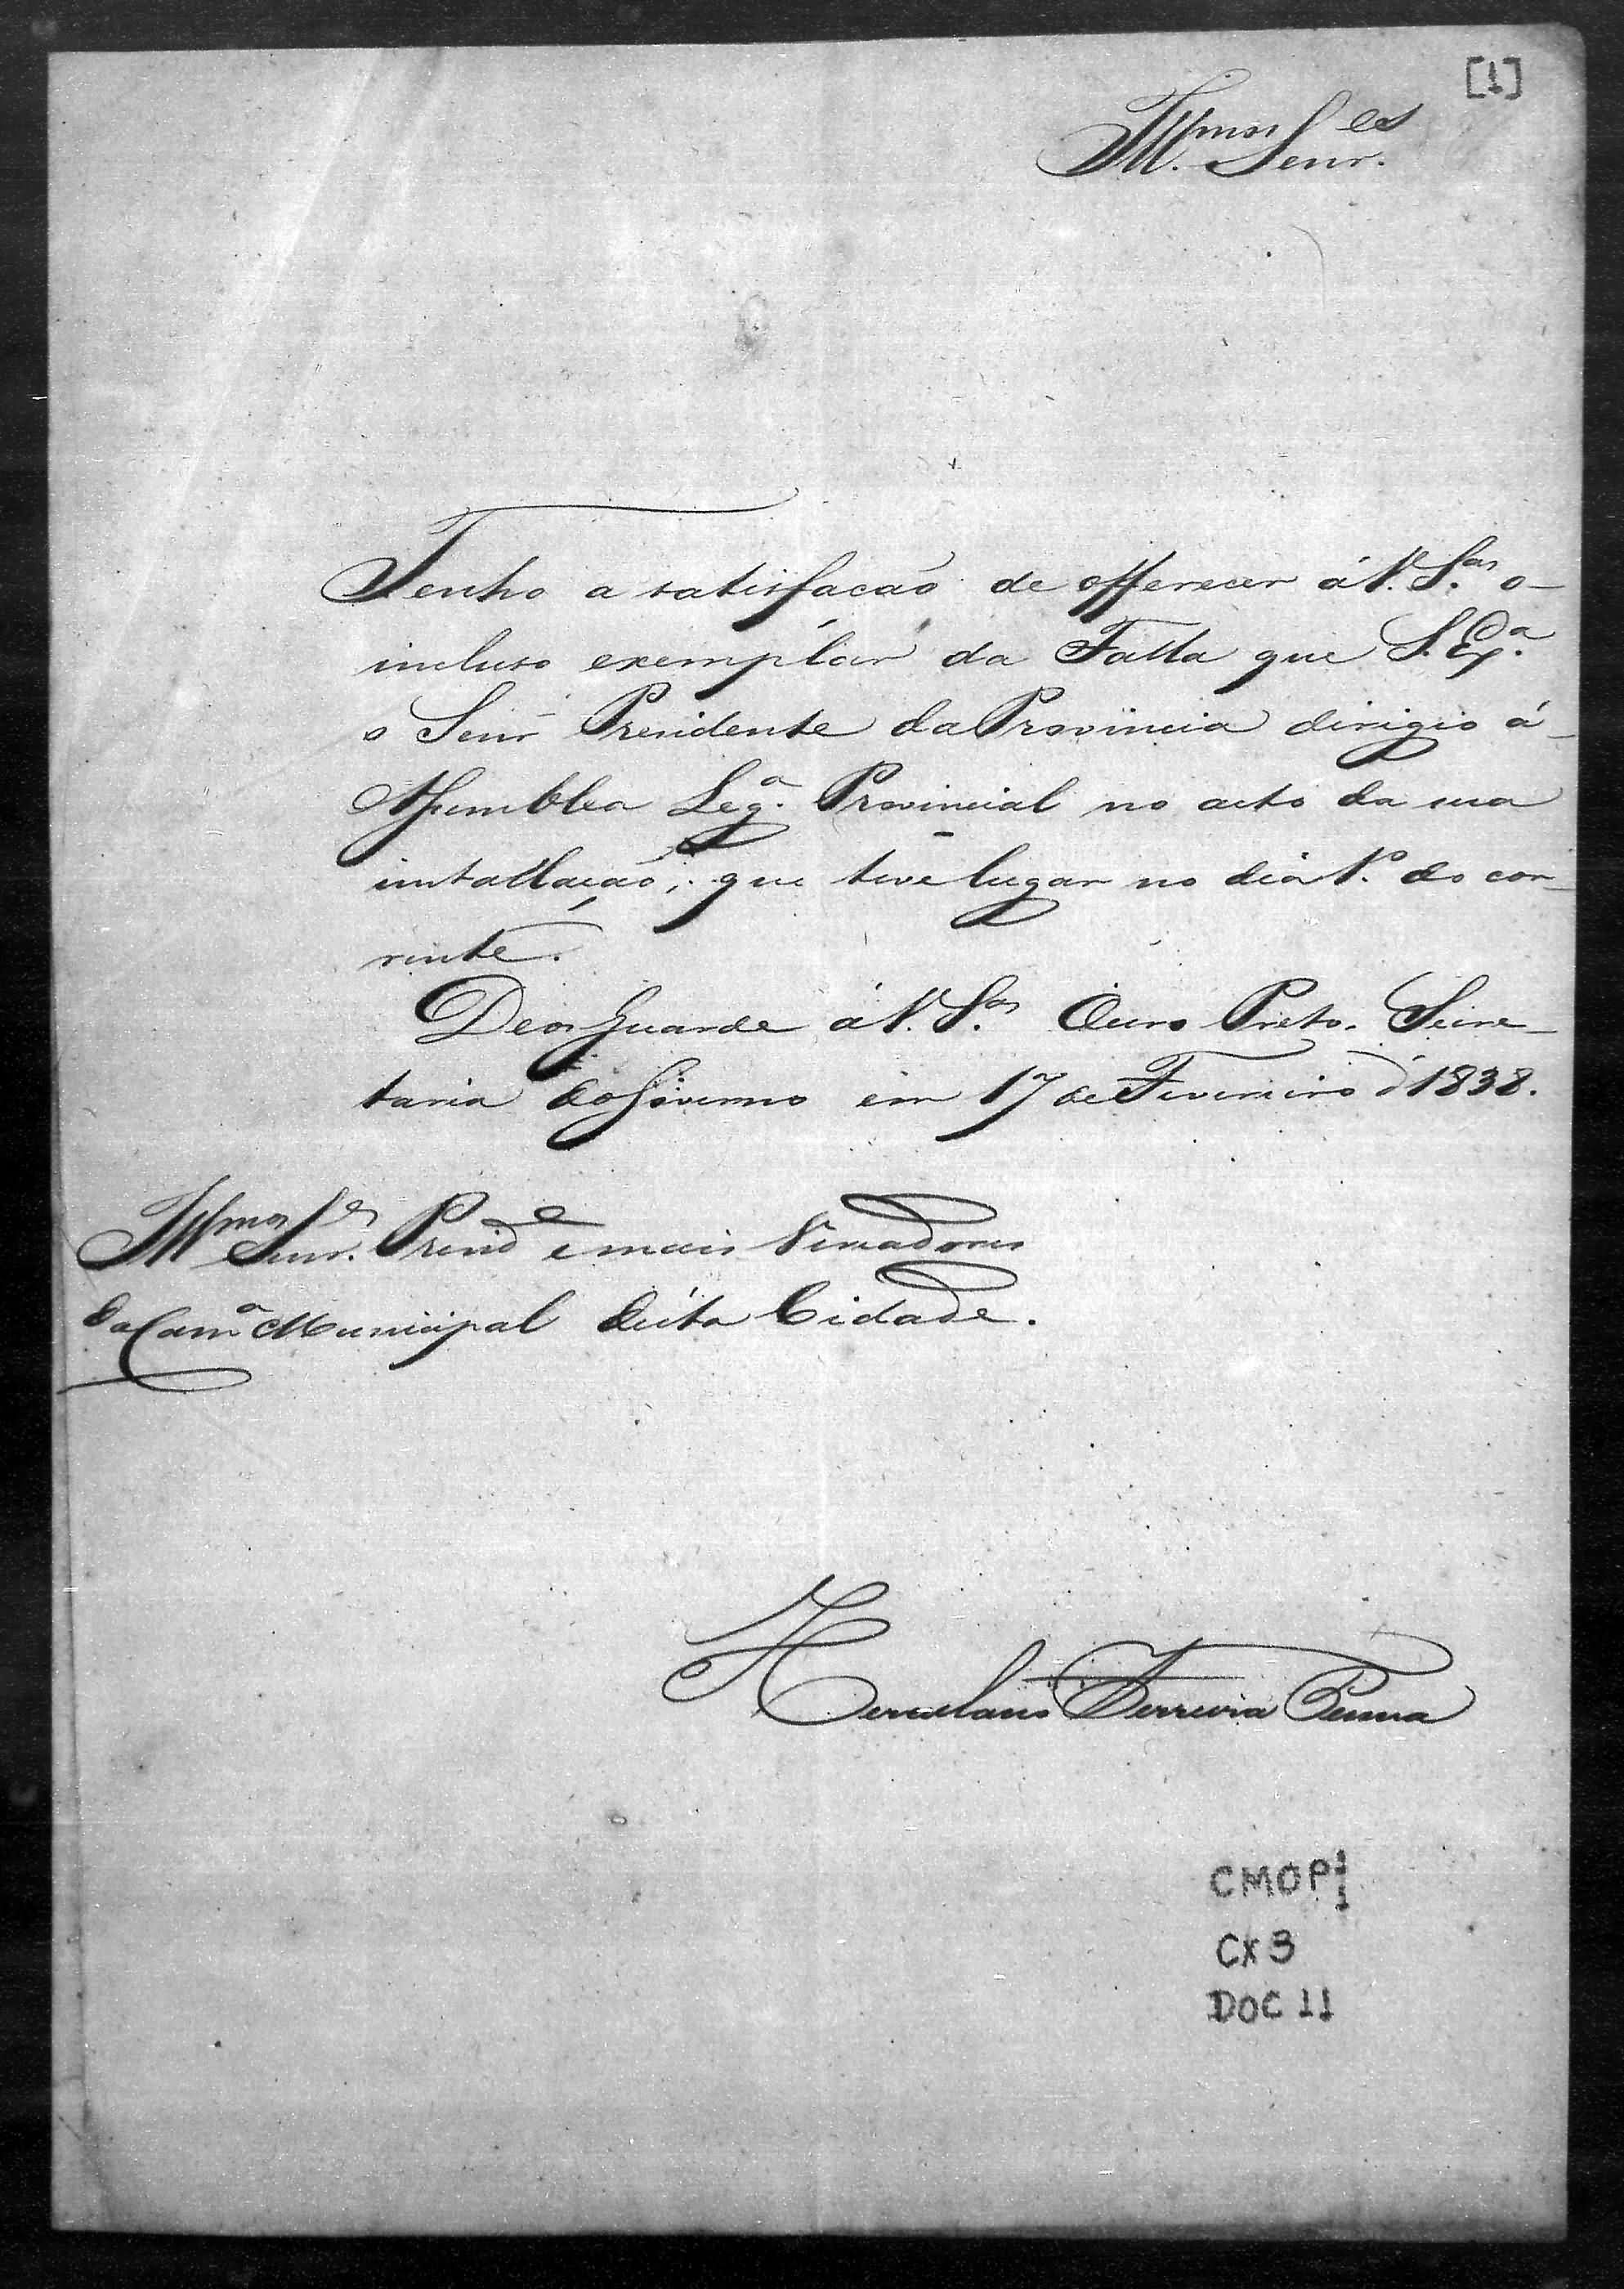 [1]
Ill.mos Senr.es
Tenho a satisfação de offerecer á V. S.as o
incluso exemplar da Falla que S. Ex.a
o Senr Presidente da Provincia dirigio á
Assemblea Leg.a Provincial no acto da sua
installação, que teve lugar no dia 1.o do cor-
rente.
Deos Guarde á V. S.as Ouro Preto. Secre-
taria do Governo em 17 de Fevereiro d' 1838.
Ill.mos Senr.es Presid.e e mais Vereadores
da Cam.a Municipal desta Cidade.
Herculano Ferreira Penna
CMOP 1/1
CX 3
DOC 11